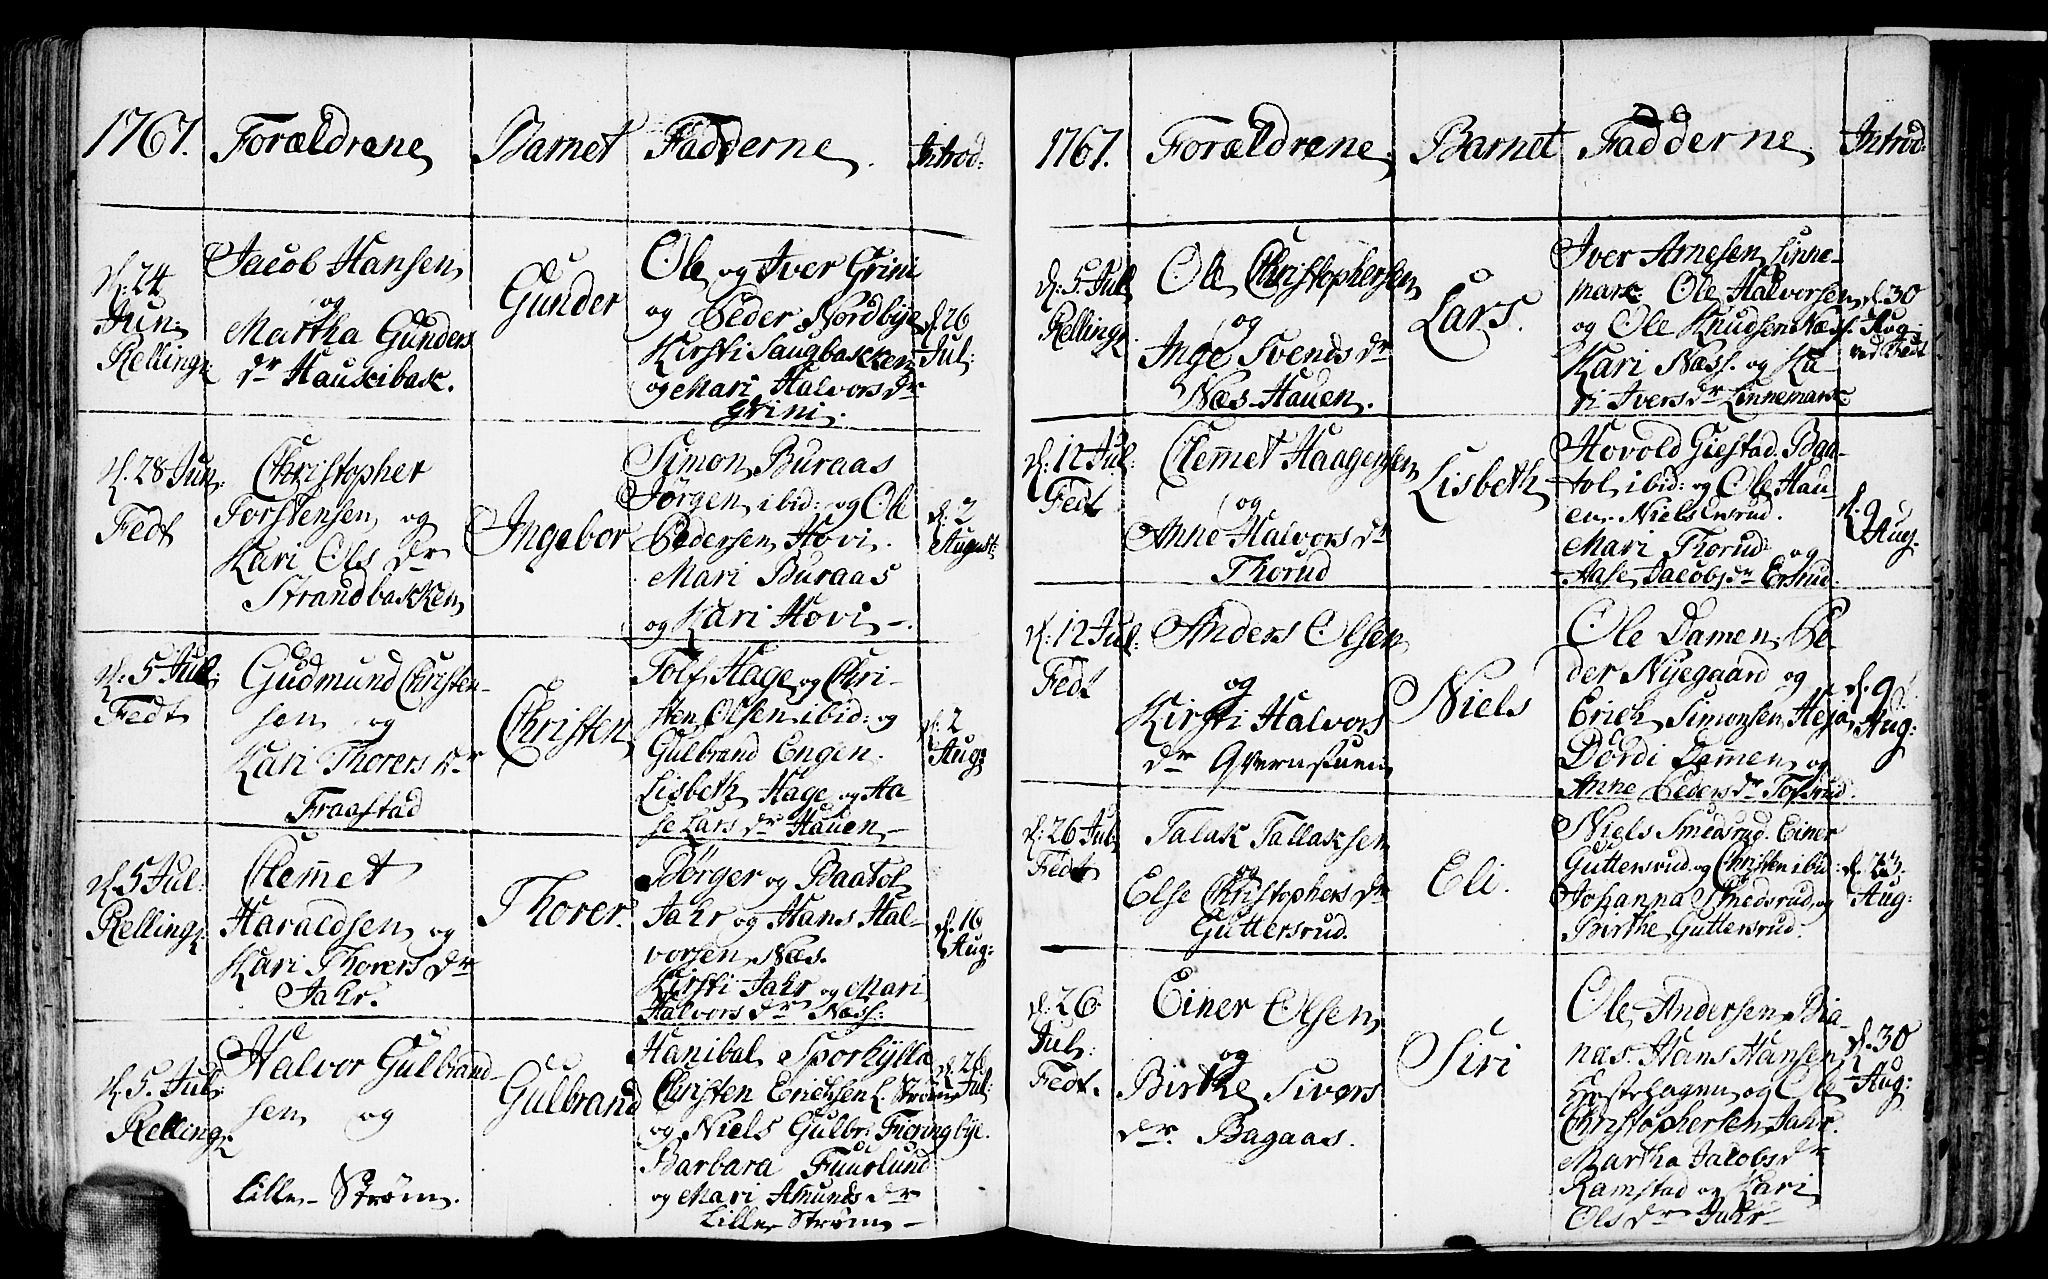 1767. Forældrene Barnet Fadderne. Introd:
d. 24
Jun:
Relling:
Jacob Hansen
og
Martha Gunders
dr Haukibak.
Gunder
Ole og Iver Grini
og Peder Nordbye
Kirsti Haugbakken
og Mari Halvors dr
Grini.
d. 26
Jul:
d. 28 Jun:
Fedt
Christopher
Torstensen og
Kari Ols dr
Strandbakken
Ingebor
Simon Buraas
Jørgen ibid: og Ole
Pedersen Hovi.
Mari Buraas
og Kari Hovi –.
d. 2
August:
d. 5 Jul:
Fedt
Gudmund Christen-
sen og
Kari Thorers dr
Fraastad
Christen
Tolf Hage og Chri-
sten Olsen ibid: og
Gulbrand Engen.
Lisbeth Hage og Aa-
se Lars dr Hauen –
d. 2
Aug:
d. 5 Jul:
Relling:
Clemmet
Haraldsen og
Kari Thorers dr
Jahr.
Thorer.
Børger og Baatol
Jahr og Hans Hal-
vorsen Næs.
Kirsti Jahr og Mari
Halvors dr Næss:
d. 16
Aug:
d. 5. Jul:
Relling:
Halvor Gulbrand-
sen og
Lille-Strøm.
Gulbrand
Hanibal
Christen Erichsen L. Strøm
og Niels Gulbr. Tueringbye.
Barbara Fuurlund
og Mari Amunds dr
Lille Strøm –
d. 26
Jul:
1767. Forældrene Barnet Fadderne. Introd:
d. 5. Jul
Relling:
Ole Christophersen
og
Inge Svends dr
Næs-Hauen.
Lars.
Iver Arnesen Linne-
mark: Ole Halvorsen
og Ole Knudsen Næss.
Kari Næss. og Ka-
ri Ivers dr Linnemark
d. 30
Aug.
ved Fedt
d. 12 Jul:
Fedt
Clemmet Haagensen
og
Anne Halvors dr
Thorud
Lisbeth
Hovold Giestad. Baa-
tol ibid: og Ole Hau-
en. Niels Ersrud.
Mari Thorud og
Aase Jacobs dr Ersrud.
d. 9
Aug:
d. 12 Jul:
Fedt
Anders Olsen
og
Kirsti Halvors
dr Qvernstuen
Niels
Ole Damen, Pe-
der Nyegaard og
Erich Simonsen Heja
Dordi Damen og
Anne Peders dr Tofsrud.
d. 9
Aug:
d. 26 Jul:
Fedt
Talak Tallaksen
og
Else Christophers dr
Guttersrud.
Eli.
Niels Smedsrud. Einer
Guttersrud og Christen ibid:
Johanna Smedsrud og
Birthe Guttersrud.
d. 23.
Aug:
d. 26
Jul:
Fedt.
Einer Olsen
og
Birthe Sivers
dr. Bagaas.
Siri
Ole Andersen Bia-
næs. Hans Hansen
Hestehagen og Ole
Christophersen Jahr.
Martha Jacobs dr
Ramstad og Kari
Ols dr Jahr –
d. 30
Aug: